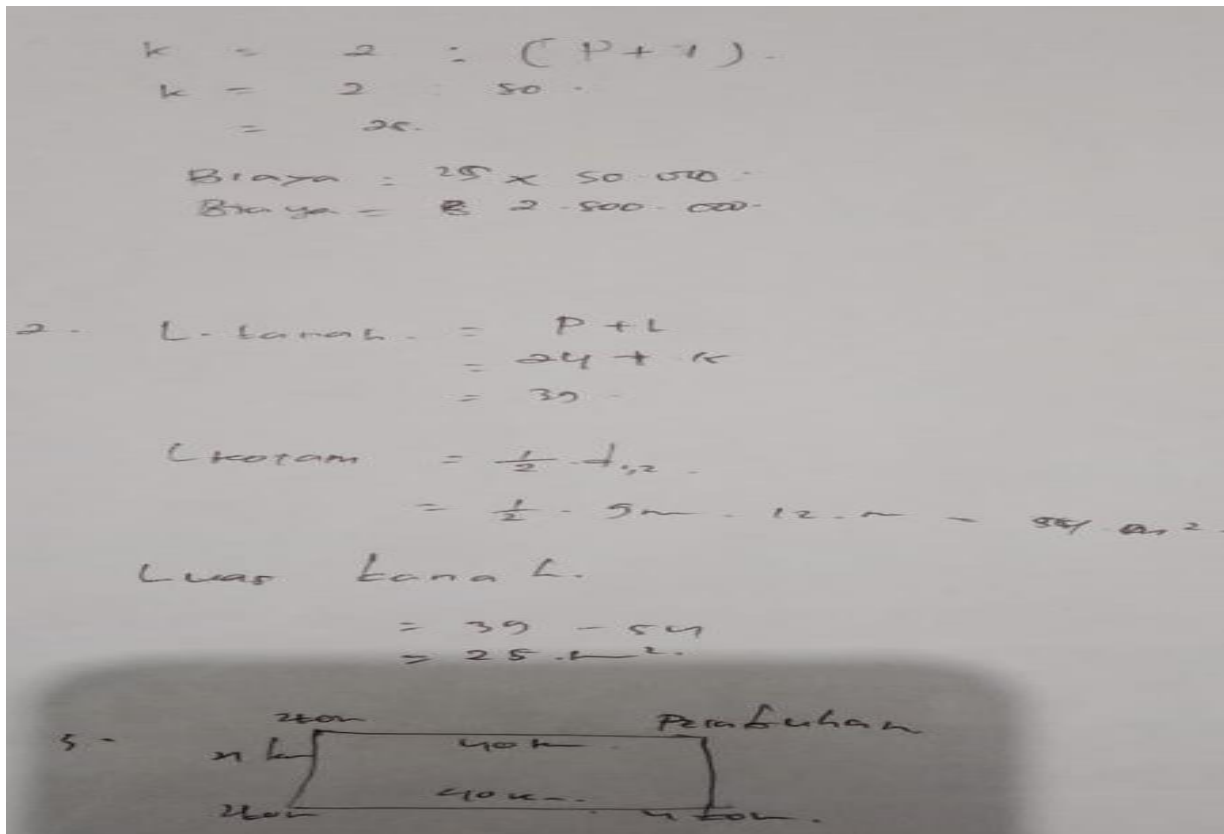 k = 2 : (P + 1).
k = 2 : 50.
= 25.
Biaya = 25 × 50.000.
Biaya = 2.500.000.
2. L. tanah. = P + L
= 24 + 15
= 39
L kolam = 1/2 ·
= 1/2 · 9m . 12.m = 54 m²
Luas tanah.
= 39 - 54
= 25.m².
5. Pelabuhan
40 k
40 k